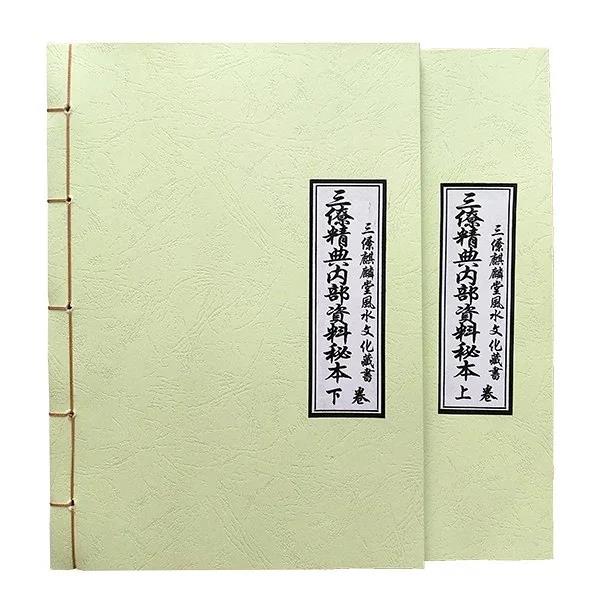 三僚麒麟堂風水文化藏書
三僚精典內部資料秘本
下卷
三僚麒麟堂風水文化藏書
三僚精典內部資料秘本
上卷